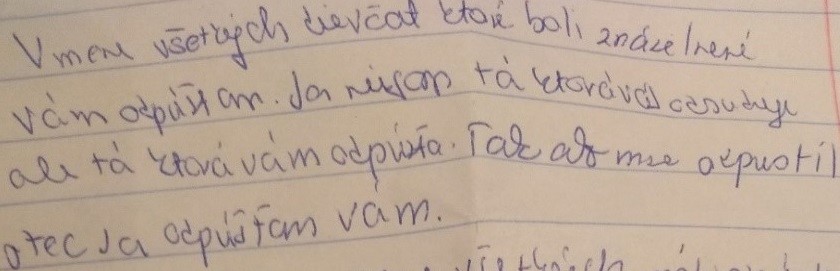 V mene všetkých dievčat ktoré boli znásilnené
vám odpúšťam. Ja niesom tá ktorá vás odsudzuje
ale tá ktorá vám odpúšťa. Tak ako mne odpustil
otec Ja odpúšťam vám.
všetkých